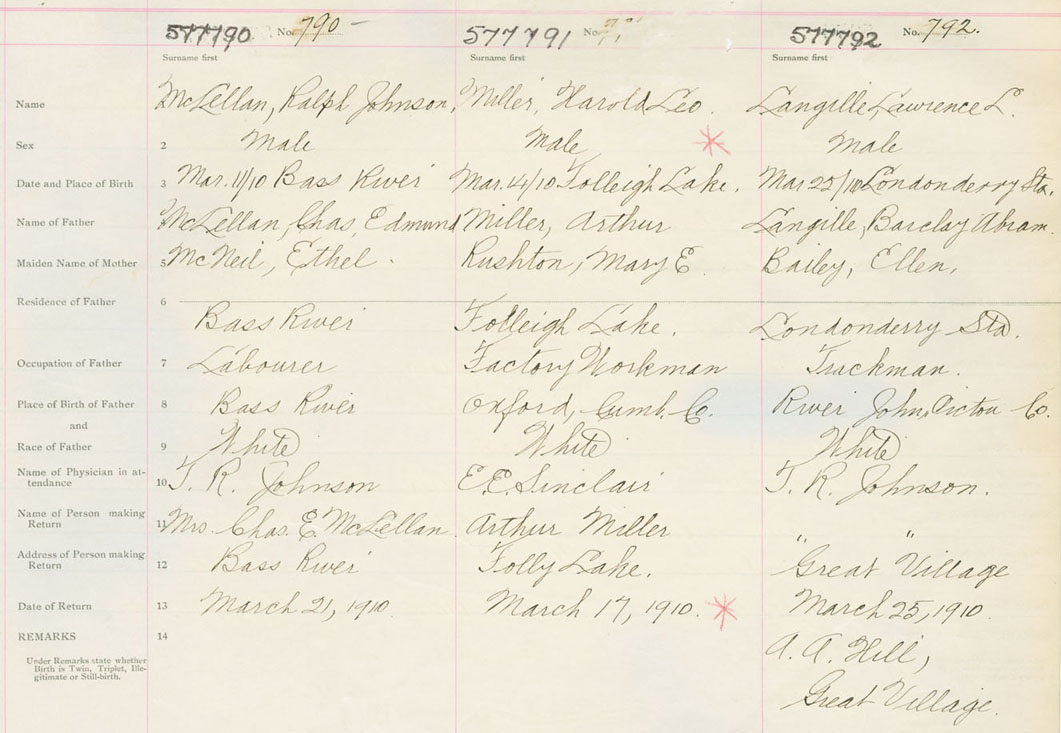 577790 No. 790 - 577791 No. 577792 No. 792.
Surname first Surname first Surname first
Name McLellan, Ralph Johnson, Miller, Harold Leo. Langille, Lawrence L.
Sex 2 Male Male Male
Date and Place of Birth 3 Mar. 11/10 Bass River Mar. 14/10 Folleigh Lake. Mar 22/10 Londonderry Sta.
Name of Father McLellan, Chas. Edmund Miller, Arthur Langille, Barclay Abram.
Maiden Name of Mother 5 McNeil, Ethel. Rushton, Mary E. Bailey, Ellen.
Residence of Father 6
Bass River Folleigh Lake. Londonderry Sta.
Occupation of Father 7 Labourer Factory Workman Truckman.
Place of Birth of Father 8 Bass River Oxford, Cumb. Co. River John, Pictou Co.
and
Race of Father 9 White White White
Name of Physician in at-
tendance 10 T. R. Johnson E.E. Sinclair T. R. Johnson.
Name of Person making
Return 11 Mrs. Chas. E. McLellan. Arthur Miller " "
Address of Person making
Return 12 Bass River Folly Lake. Great Village
Date of Return 13 March 21, 1910 March 17, 1910. March 25, 1910
REMARKS 14 A. A. Hill,
Under Remarks state whether
Birth is Twin, Triplet, Ille-
gitimate or Still-birth.
Great Village.